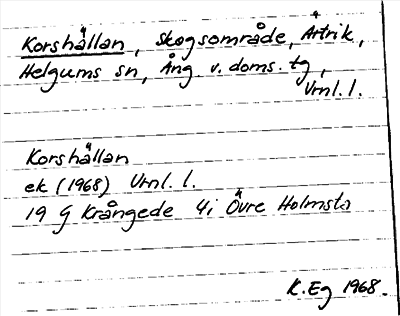 Korshällan, skogsområde, Artrik,
Helgums sn, Ång. v. doms. tg,
Vrnl. l.
Korshällan
ek (1968) Vrnl. l.
19 G Krångede 4i Övre Holmsta
K. Eg 1968.